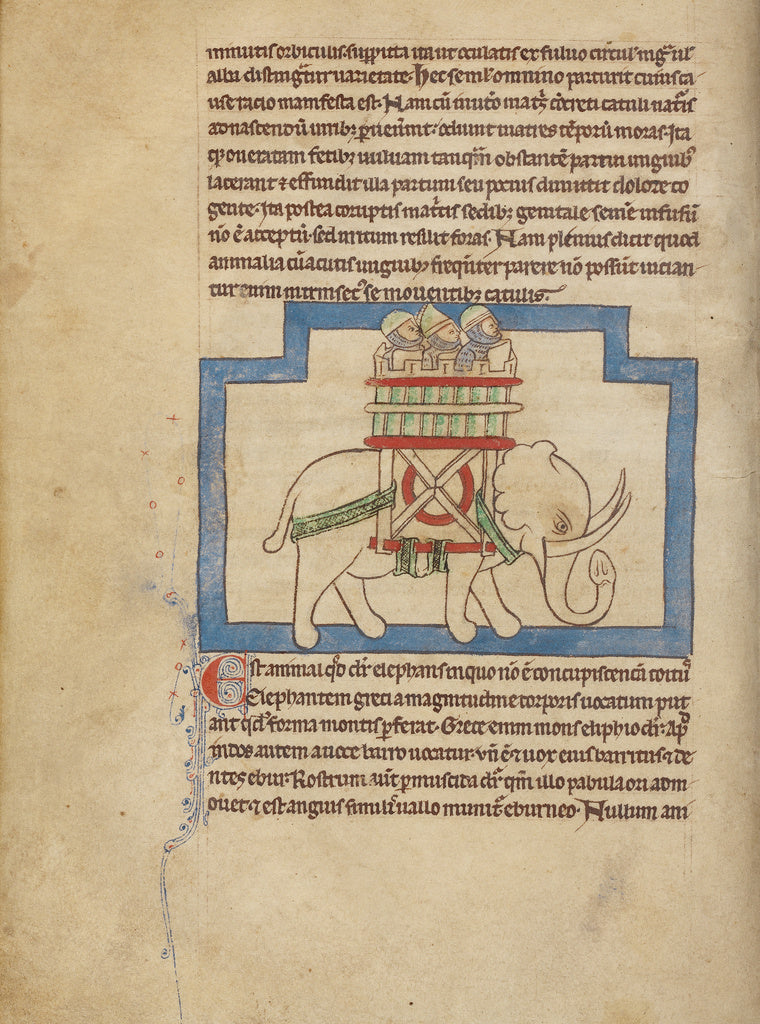 minutis orbiculis. suppicta ita ut oculatis ex fuluo circul' nig͛ ul'
alba distinguit͛ uarietate. Hec semel omnino parturit cuius ca
use racio manifesta est. Nam cū in utero mat͛s cōcreti catuli nat͛is
ad nascendū uiribꝫ ꝑueniunt. odiunt matres tēporū moras. Ita
oneratam fetibꝫ uuluam tanq̄m obstantē partui unguibꝫ
lacerant ⁊ effundit illa partum seu potius dimittit dolore co
gente. Ita postea coruptis mat͛cis sedibꝫ genitale semē infusū
nō ē acceptū. sed irritum resilit foras. Nam plenius dicit quod
animalia cū acutis unguibꝫ freq̄nter parere nō possūt uician
tur enim intrinsec᷒ se mouentibꝫ catulis.
Est animal qd dr̄ elephans in quo nō ē concupiscencia coitus
Elephantem greci a magnitudine corporis uocatum put
ant qd forma montis p̄ferat. Grece enim mons eliphio dr̄. Ap̄
indos autem a uoce barro uocatur. vn̄ ⁊ uox eius barritus ⁊ de
ntes ebur. Rostrum aut̄ ꝓmuscida dr̄. qm̄ illo pabula ori adm
ouet. ⁊ est angui simil' uallo munit͛ eburneo. Nullum ani